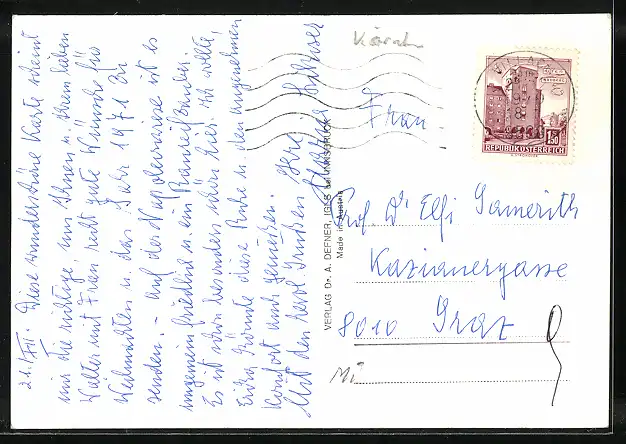 21./XII. Diese wunderschöne Karte scheint
mir die richtige, um Ihnen u. Ihrem lieben
Walter mit Frau recht gute Wünsche für
Weihnachten u. das Jahr 1971 zu
senden. - auf der ist es
ungemein friedlich u. ein Rauhreifzauber.
Es ist schön besonders schön hier. Ich wollte,
Erika könnte diese Ruhe u. den angenehmen
Komfort auch genießen.
Mit den herzl. Grüßen Ihre
Kärnten
Frau
Prof. Dr Elfi Gamerith
Kasianergasse
8010 Graz
VILLACH
1.50
REPUBLIK ÖSTERREICH
VERLAG Dr. A. DEFNER, IGLS bei INNSBRUCK
Made in Austria